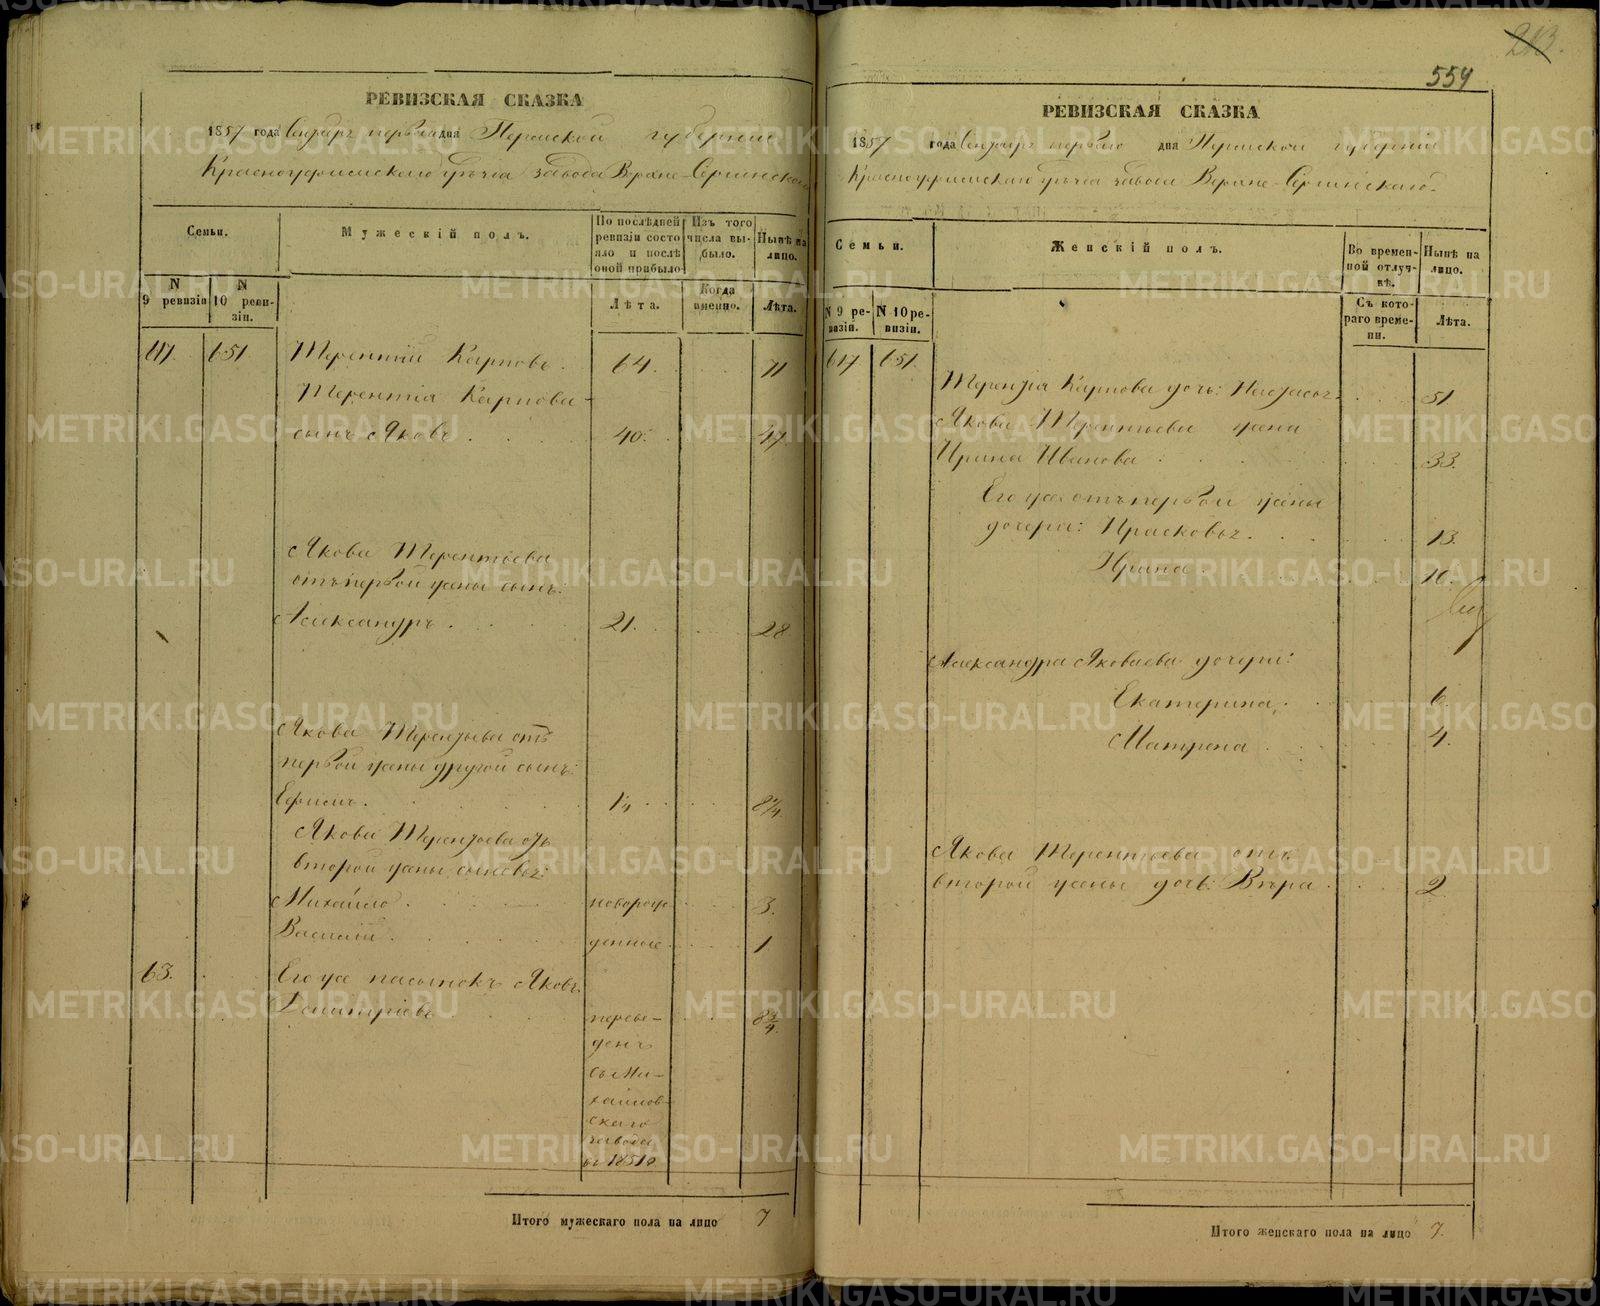 РЕВИЗСКАЯ СКАЗКА
1857 года Сентября первого дня Пермской губернии
Красноуфимскаго уѣзда завода Верхне-Сергинскаго
Семьи.
Мужескій полъ.
По послѣдней ревизіи состояло и послѣ оной прибыло
Изъ того числа выбыло.
Нынѣ на лицо.
N 9 ревизіи
N 10 ревизіи.
Лѣта.
Когда именно.
Лѣта.
617. 651 Терентій Карповъ. 64. 71
Терентія Карпова
сынъ Яковъ. 40. 47
Якова Терентьева
отъ первой жены сынъ:
Александръ. 21. 28
Якова Терентьева отъ
первой жены другой сынъ:
Ефимъ. 1¼ 8¼
Якова Терентьева отъ
второй жены сыновья:
Михайло. новорож- 3.
Василій. денные 1
63. Его же пасынокъ Яковъ
Дмитріевъ переве- 8¾
денъ
съ Ми-
хайлов-
скаго
завода
въ 1851 г
Итого мужескаго пола на лицо 7
213.
554
РЕВИЗСКАЯ СКАЗКА
1857 года Сентября первого дня Пермской губерніи
Красноуфимскаго уѣзда завода Верхне-Сергинскаго.
Семьи.
Женскій полъ.
Во временной отлучкѣ.
Нынѣ на лицо.
N 9 ревизіи.
N 10 ревизіи.
Съ котораго времени.
Лѣта.
617 651.
Терентія Карпова дочь: Настасья 51
Якова Терентьева жена
Ирина Иванова 33.
Его же отъ первой жены
дочери: Прасковья. 13.
Ирина 10.
Александра Яковлева дочери:
Екатерина. 6.
Матрена. 4.
Якова Терентьева отъ
второй жены дочь: Вѣра. 2
Итого женскаго пола на лицо 7.
METRIKI.GASO-URAL.RU